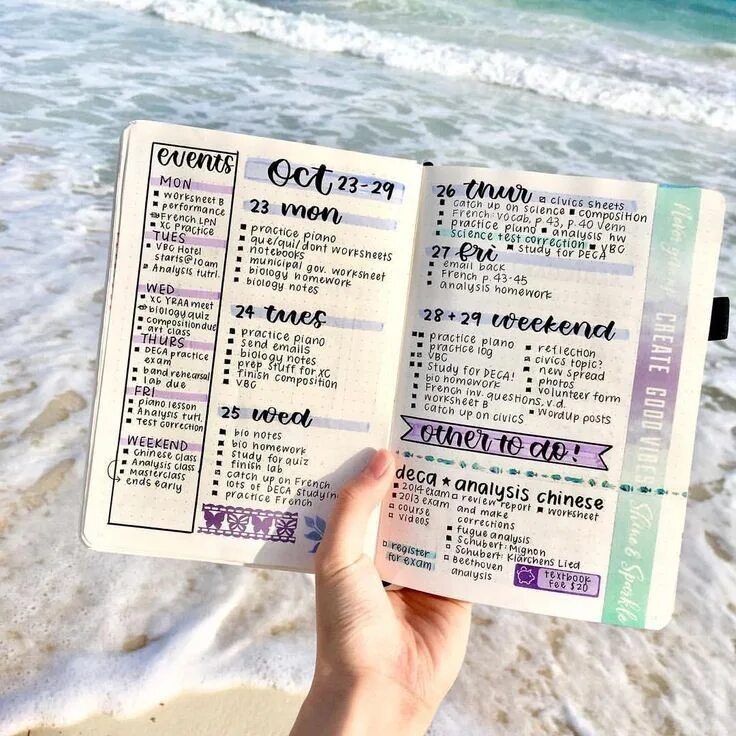 events
MON
worksheet B
performance
French LPN
XC Practice
TUES
VBC Hotel
starts@10am
Analysis tutrl.
WED
XC YRAA meet
biology quiz
composition due
art class
THURS
DECA practice
exam
band rehearsal
lab due
FRI
piano lesson
Analysis tutrl.
Test correction
WEEKEND
Chinese class
Analysis class
Masterclass
ends early
Oct 23-29
23 mon
practice piano
que/qui/dont worksheets
notebooks
municipal gov. worksheet
biology homework
biology notes
24 tues
practice piano
send emails
biology notes
prep stuff for XC
finish composition
VBC
25 wed
bio notes
bio homework
study for quiz
finish lab
catch up on French
lots of DECA studying
practice French
26 thur
civics sheets
catch up on science composition
French: vocab, p.43, p.40 Venn
practice piano analysis hw
Science test correction VBC
Study for DECA
27 fri
email back
French p.43-45
analysis homework
28 + 29 weekend
practice piano
practice log
VBC
Study for DECA!
bio homework
French inv. questions, v.d.
worksheet B
Catch up on civics
reflection
civics topic?
new spread
photos
volunteer form
WordUp posts
other to do!
deca analysis chinese
2014 exam
2013 exam
course
videos
register
for exam
review report
and make
corrections
fugue analysis
Schubert: Mignon
Schubert: Klärchens Lied
Beethoven
analysis
worksheet
textbook
fee $20
CREATE GOOD VIBES
Shine & Sparkle